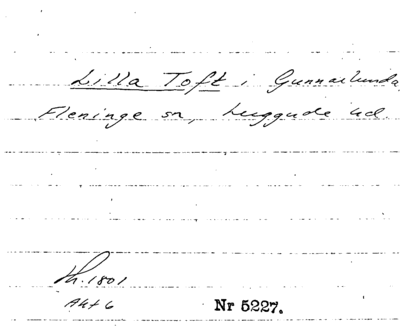 Lilla Toft i Gunnarlunda,
Fleninge sn, Luggude hd.
h. 1801
Akt 6
Nr 5227.